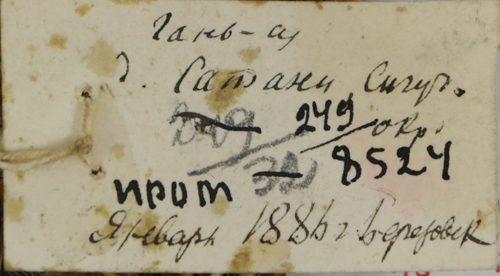 Гань-су
д. Сатани Сигу.
249 249 окр.
32 8524
прот
Январь 1886 г. Березовск